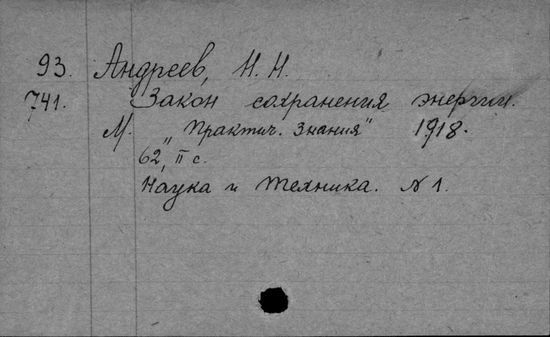 93. Андреев, Н. Н.
741. Закон сохранения энергии.
М. „Практич. Знания" 1918.
62, II с.
Наука и техника. № 1.